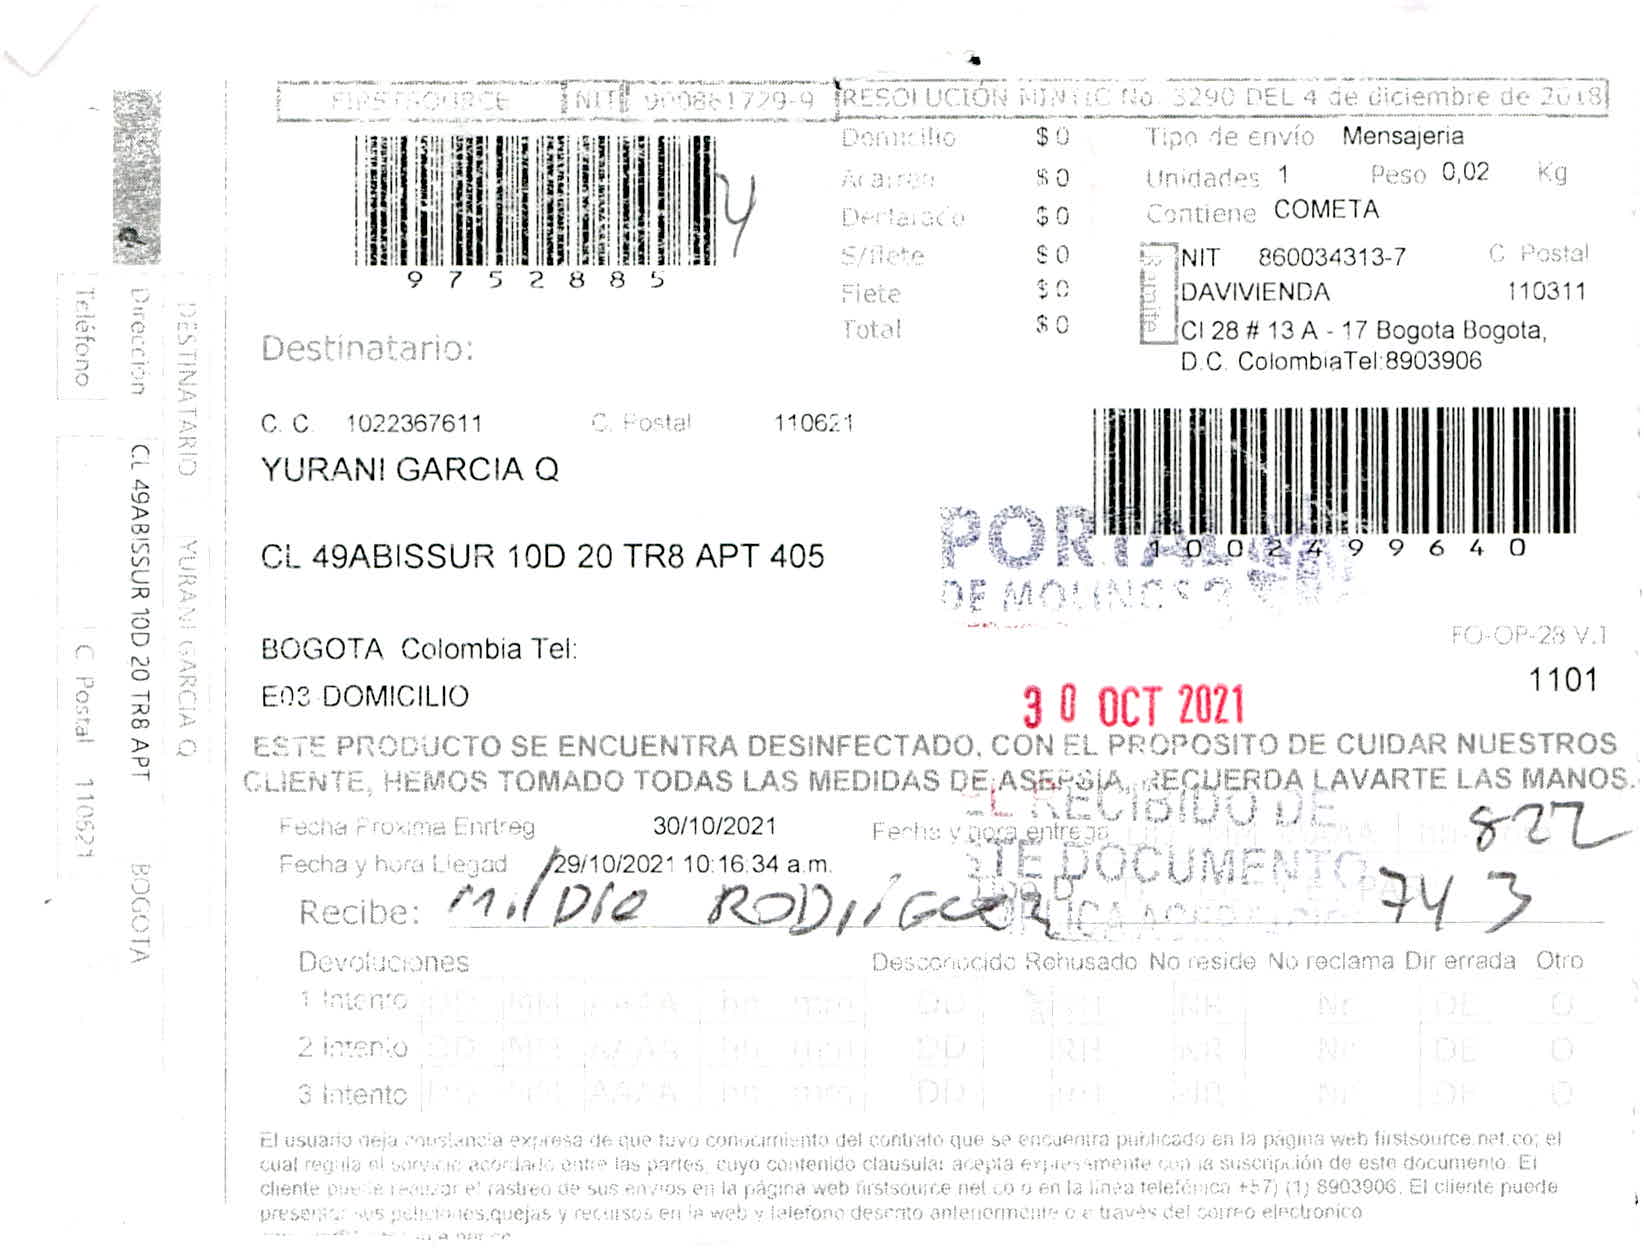 FIRSTSOURCE NIT 900861729-9 RESOLUCIÓN MINTIC No. 3290 DEL 4 de diciembre de 2018
9752885
4
Domicilio $ 0
Acarreo $ 0
Declarado $ 0
S/flete $ 0
Flete $ 0
Total $ 0
Tipo de envío Mensajeria
Unidades 1 Peso 0,02 Kg
Contiene COMETA
Remite
NIT 860034313-7 C Postal
DAVIVIENDA 110311
Cl 28 # 13 A - 17 Bogota Bogota,
D.C. ColombiaTel:8903906
Destinatario:
C. C. 1022367611 C. Postal 110621
YURANI GARCIA Q
CL 49ABISSUR 10D 20 TR8 APT 405
1002499640
PORTAL
DE MOLINOS 2
BOGOTA Colombia Tel:
E03 DOMICILIO
FO-OP-28 V.1
1101
30 OCT 2021
ESTE PRODUCTO SE ENCUENTRA DESINFECTADO, CON EL PROPOSITO DE CUIDAR NUESTROS
CLIENTE, HEMOS TOMADO TODAS LAS MEDIDAS DE ASEPSIA, RECUERDA LAVARTE LAS MANOS.
Fecha Proxima Enrtreg 30/10/2021 Fecha y hora entrega
822
Fecha y hora Llegad 29/10/2021 10:16:34 a.m.
EL RECIBIDO DE
DOCUMENTO
743
Recibe: Mildre RODríGuez
Devoluciones Desconocido Rehusado No reside No reclama Dir errada Otro
1 Intento DD MM AAAA hh mm DD RH NR Nr DE O
2 Intento DD MM AAAA hh mm DD RH NR Nr DE O
3 Intento DD MM AAAA hh mm DD RH NR Nr DE O
El usuario deja constancia expresa de que tuvo conocimiento del contrato que se encuentra publicado en la página web firstsource.net.co; el
cual regula el servicio acordado entre las partes, cuyo contenido clausular acepta expresamente con la suscripción de este documento. El
cliente puede realizar el rastreo de sus envios en la página web firstsource.net.co o en la linea telefónica +57) (1) 8903906. El cliente puede
presentar sus peticiones,quejas y recursos en la web y telefono descrito anteriormente o a través del correo electronico
DESTINATARIO YURANI GARCIA Q
Dirección CL 49ABISSUR 10D 20 TR8 APT BOGOTA
Teléfono C Postal 110621